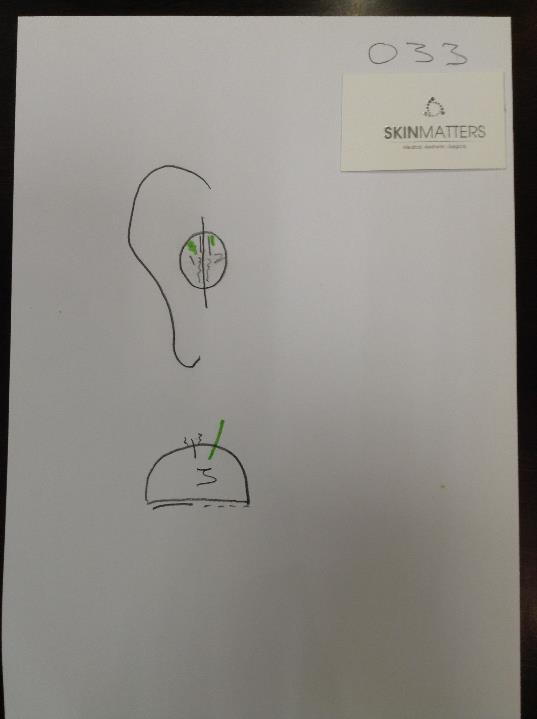 033
SKINMATTERS
Medical. Aesthetic. Surgical.
3 3
3